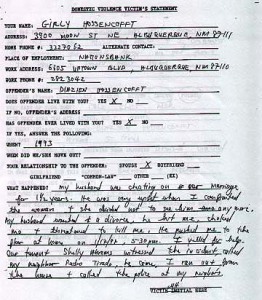 DOMESTIC VIOLENCE VICTIM'S STATEMENT
YOUR NAME: GIRLY HOSSENCOFFT
ADDRESS: 3900 MOON ST NE ALBUQUERQUE, NM 87111
HOME PHONE #: 3327052 ALTERNATE CONTACT:
PLACE OF EMPLOYMENT: NATIONSBANK
WORK ADDRESS: 6105 UPTOWN BLVD ALBUQUERQUE NM 87110
WORK PHONE #: 2823042
OFFENDER'S NAME: DIAZIEN HOSSENCOFFT
DOES OFFENDER LIVE WITH YOU? YES X NO
IF NO, OFFENDER'S ADDRESS
HAS OFFENDER EVER LIVED WITH YOU? YES X NO
IF YES, ANSWER THE FOLLOWING:
WHEN? 1993
WHEN DID HE/SHE MOVE OUT?
YOUR RELATIONSHIP TO THE OFFENDER: SPOUSE X BOYFRIEND
GIRLFRIEND "COMMON-LAW" OTHER (EX)
WHAT HAPPENED? my husband was cheating on our marriage
for 1½ years. He was very upset when I confronted
the woman & she decided not to see him any more.
My husband wanted a divorce, he hit me, choked
me & threatened to kill me. He pushed me to the
floor at home on 5:30pm. I yelled for help.
One tenant Shelly witnessed the incident, called
my neighbor Pedro to come. I ran out from
the house & called the police at my neighbors.
VICTIM INITIAL HERE